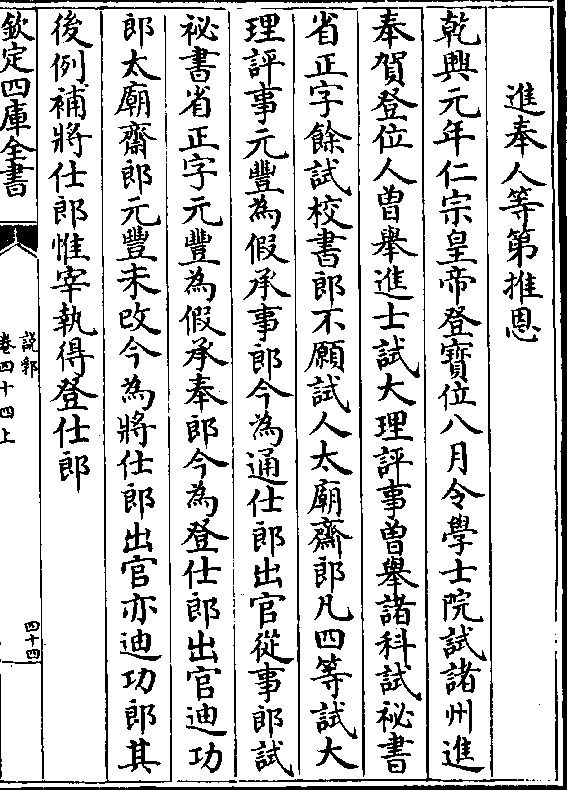 進奉人等第推恩
乾興元年仁宗皇帝登寶位八月令學士院試諸州進
奉賀登位人曽舉進士試大理評事曽舉諸科試祕書
省正字餘試校書郎不願試人太廟齋郎凡四等試大
理評事元豐為假承事郎今為通仕郎出官從事郎試
祕書省正字元豐為假承奉郎今為登仕郎出官迪功
郎太廟齋郎元豐未改今為將仕郎出官亦迪功郎其
後例補將仕郎惟宰執得登仕郎
欽定四庫全書
說郛
卷四十四上
四十四